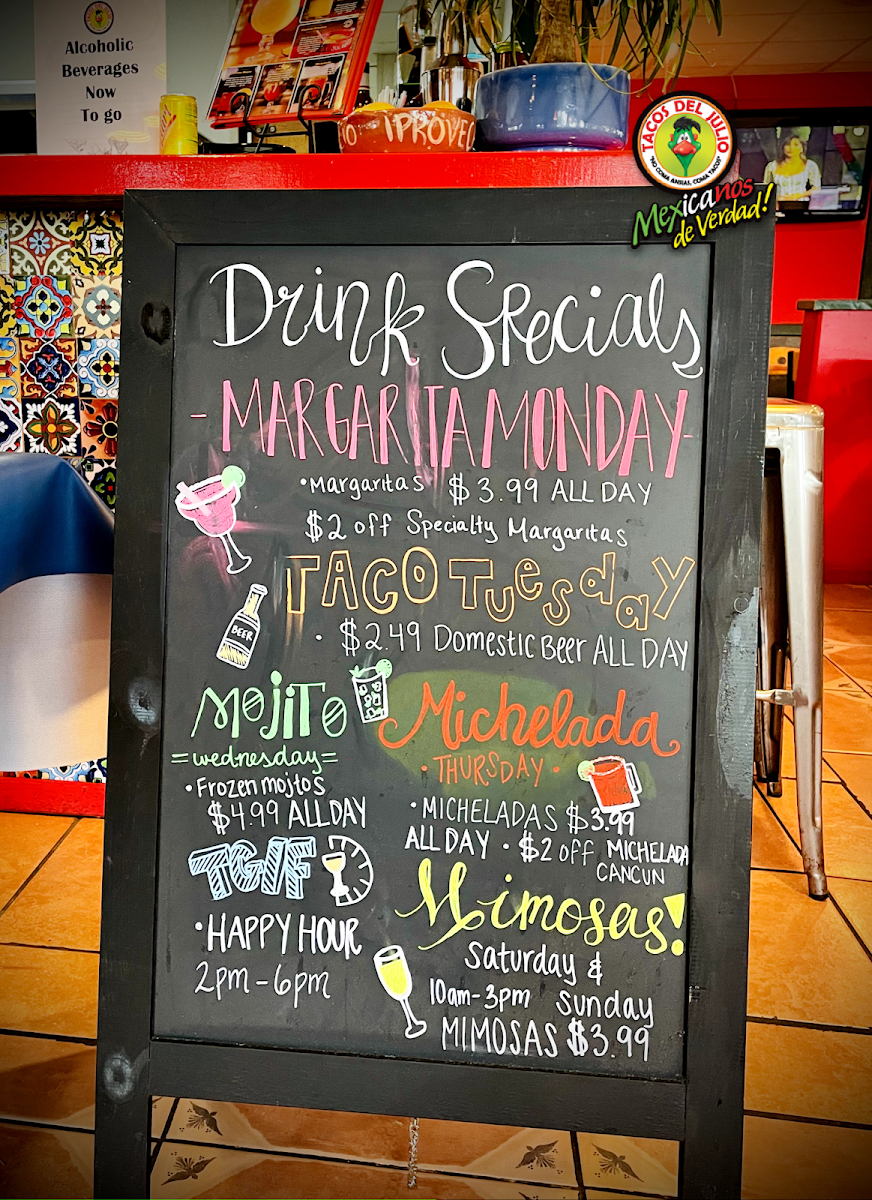 Alcoholic
Beverages
Now
To go
IPROVEC
TACOS DEL JULIO
"NO COMA ANSIAS, COMA TACOS"
Mexicanos
de Verdad!
Drink Specials
- MARGARITA MONDAY -
• Margaritas $3.99 ALL DAY
$2 off Specialty Margaritas
TACO TUesdaY
BEER
• $2.49 Domestic Beer ALL DAY
MOJITO
= wednesday =
• Frozen mojtos
$4.99 ALL DAY
Michelada
• THURSDAY •
• MICHELADAS $3.99
ALL DAY • $2 off MICHELADA
CANCUN
TGIF
• HAPPY HOUR
2pm - 6pm
Mimosas!
Saturday &
10am-3pm Sunday
MIMOSAS $3.99